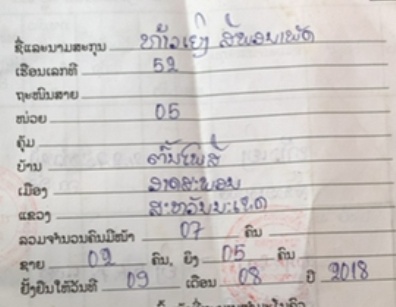 ຊື່ແລະນາມສະກຸນ ທ້າວເຍັງ ສີພອນເພັດ
ເຮືອນເລກທີ 52
ຖະໜົນສາຍ
ໜ່ວຍ 05
ຄຸ້ມ
ບ້ານ ຕົ້ນໂພສີ
ເມືອງ ອາດສະພອນ
ແຂວງ ສະຫວັນນະເຂດ
ລວມຈຳນວນຄົນມີໜ້າ 07 ຄົນ
ຊາຍ 02 ຄົນ, ຍິງ 05 ຄົນ
ຢັ້ງຢືນໃຫ້ວັນທີ 09 ເດືອນ 08 ປີ 2018